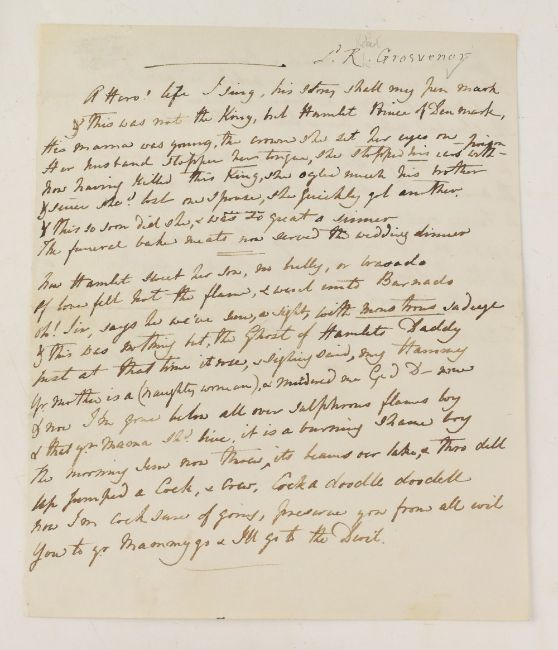 Ld. R. Grosvenor
A Hero's life I sing, his story shall my pen mark
& this was not the King, but Hamlet Prince of Denmark,
His mama was young, the crown she set her eyes on
Her husband stopped her tongue, she stopped his ears with poison
Now having killed this King, she ogled much his brother
& since she'd lost one spouse, she quickly got another.
& this so soon did she, & was so great a sinner
The funeral baked meats now served the wedding dinner
Now Hamlet sweet her son, no bully, or bravado
Of love felt hot the flame, & went unto Barnado
Oh! Sir, says he we've seen, a sight, with monstrous sad eye
& this was nothing but, the Ghost of Hamlets Daddy
Just at that time it rose, & sighing said, my Hammy
Yr. Mother is a (naughty woman), & murdered me G-d D- me
& now I'm gone below all over sulphrous flames boy
& that yr. Mama shd. live, it is a burning shame boy
The morning sun now threw, its beams oer lake, & thro dell
Up jumped a Cock, & crew, Cock a doodle doodell
Now I'm cock sure of going, preserve you from all evil
You to yr. Mammy go & I'll go to the Devil.